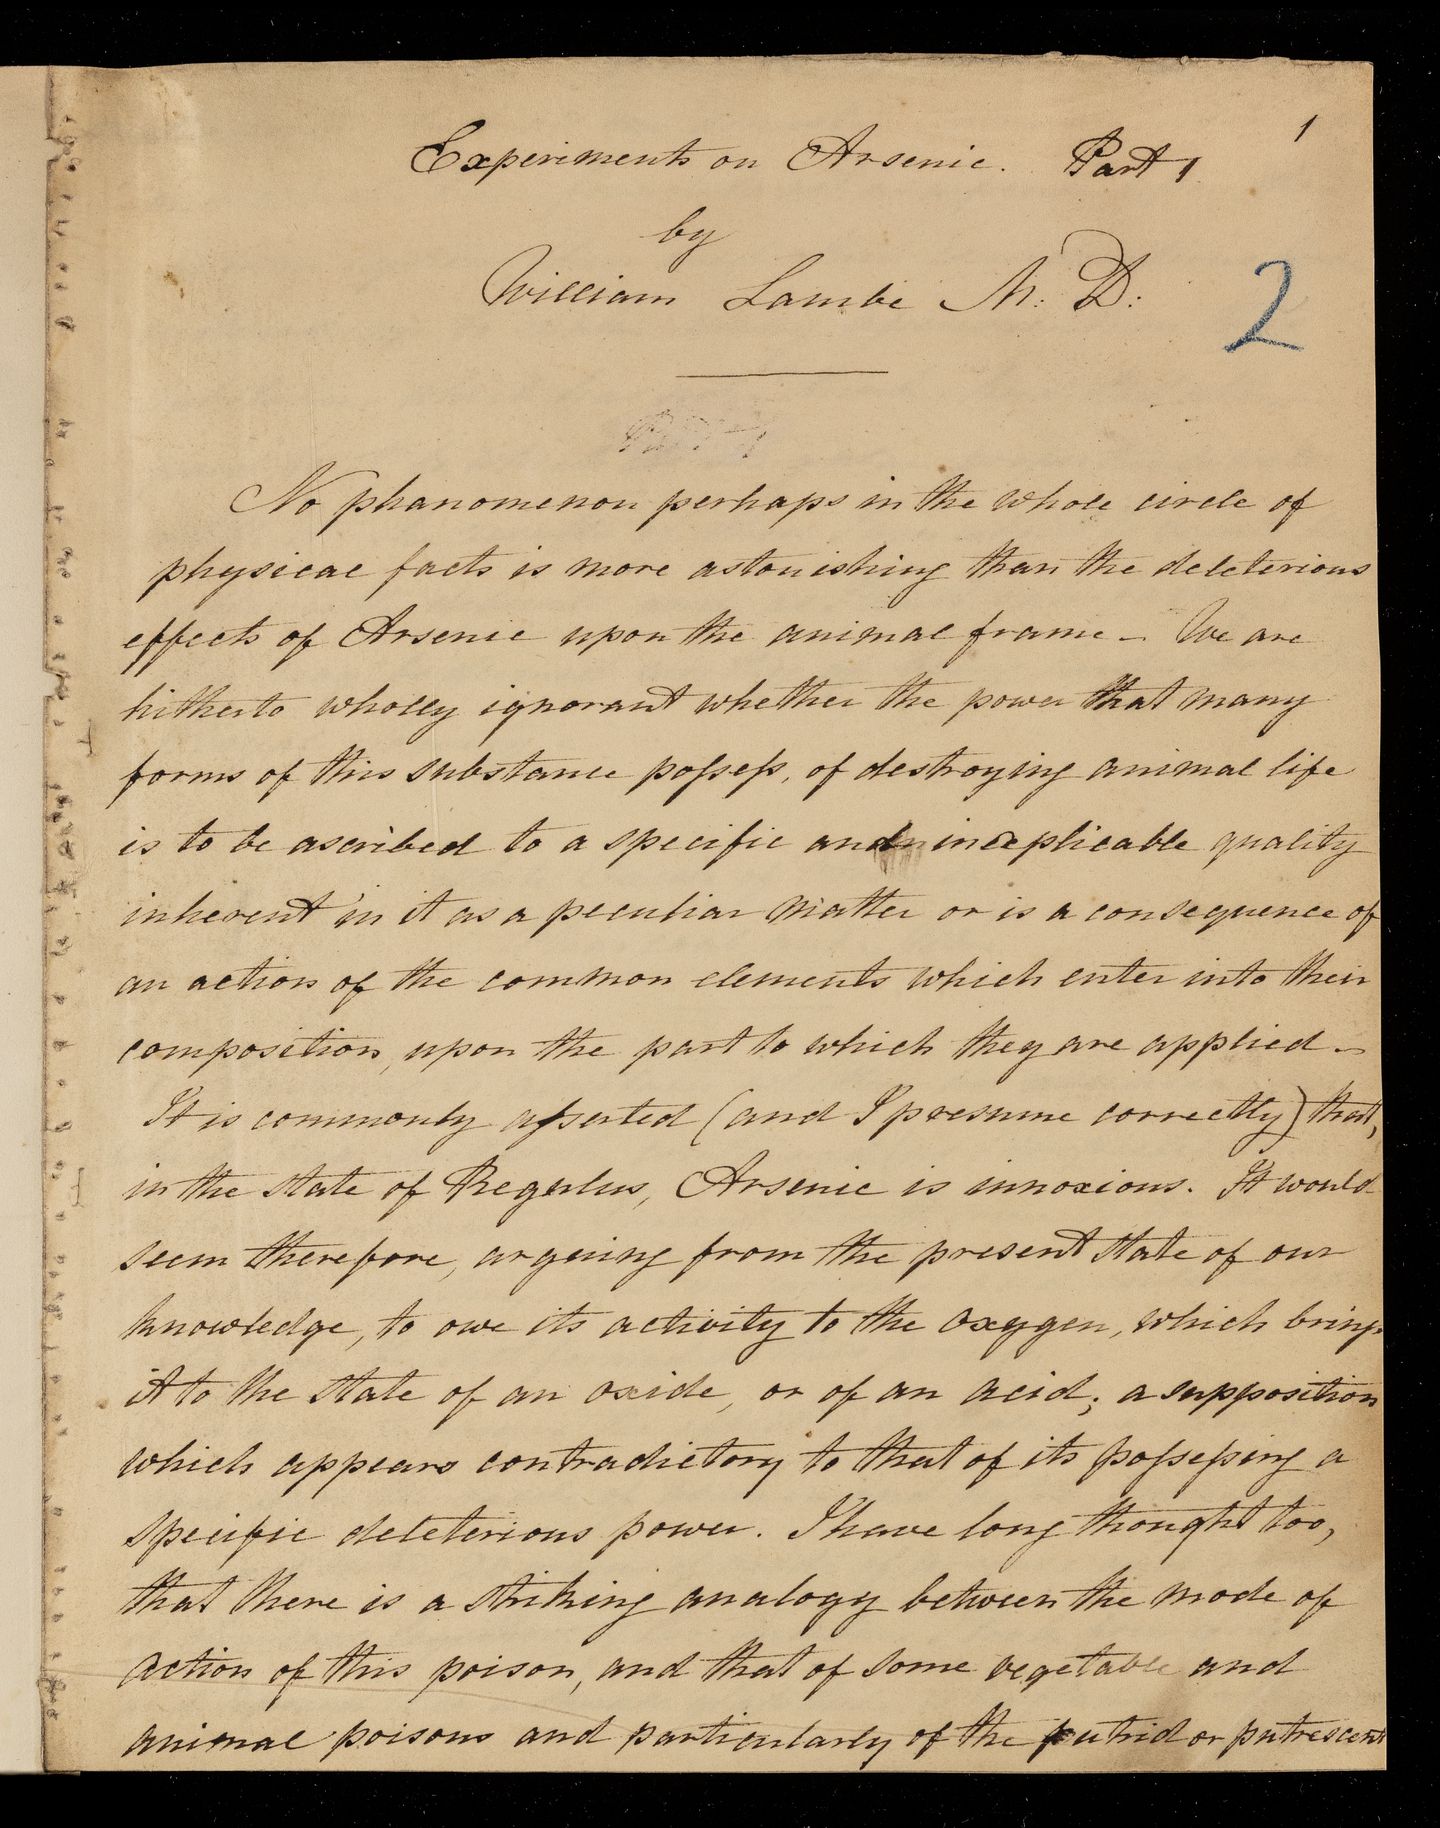 1
Experiments on Arsenic. Part 1
by
William Lambe M: D:
2
No phanomenon perhaps in the whole circle of
physical facts is more astonishing than the deleterious
effects of Arsenic upon the animal frame - We are
hitherto wholly ignorant whether the power that many
forms of this substance poſseſs, of destroying animal life
is to be ascribed to a specific and inexplicable quality
inherent in it as a peculiar matter or is a consequence of
an action of the common elements which enter into their
composition, upon the part to which they are applied -
It is commonly aſserted (and I presume correctly) that,
in the state of Regulus, Arsenic is innoxious. It would
seem therefore, arguing from the present state of our
knowledge, to owe its activity to the oxygen, which brings
it to the state of an oxide, or of an acid; a supposition
which appears contradictory to that of its poſseſsing a
specific deleterious power. I have long thought too,
that there is a striking analogy between the mode of
action of this poison, and that of some vegetable and
animal poisons and particularly of the putrid or putrescent